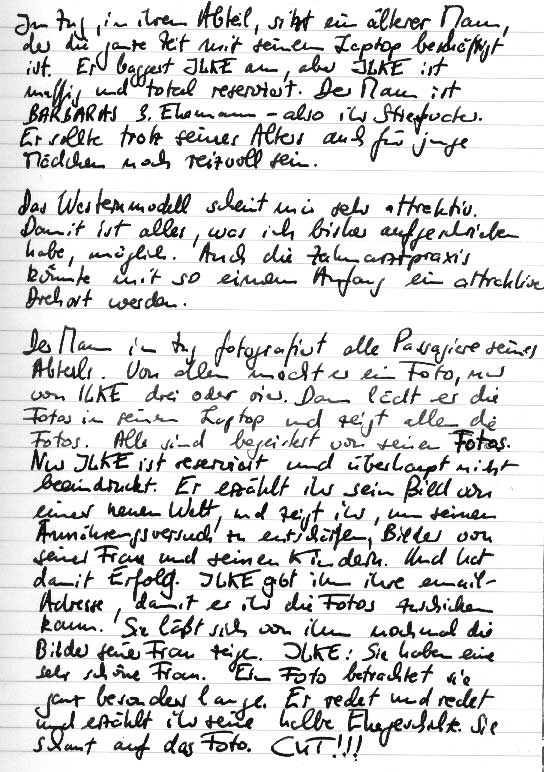 Im Zug, in ihrem Abteil, sitzt ein älterer Mann,
der die ganze Zeit mit seinem Laptop beschäftigt
ist. Er baggert ILKE an, aber ILKE ist
muffig und total reserviert. Der Mann ist
BARBARAS 3. Ehemann – also ihr Stiefvater.
Er sollte trotz seines Alters auch für junge
Mädchen noch reizvoll sein.
Das Westernmodell scheint mir sehr attraktiv.
Damit ist alles, was ich bisher aufgeschrieben
habe, möglich. Auch die Zahnarztpraxis
könnte mit so einem Anfang ein attraktiver
Drehort werden.
Der Mann im Zug fotografiert alle Passagiere seines
Abteils. Von allen macht er ein Foto, nur
von ILKE drei oder vier. Dann lädt er die
Fotos in seinen Laptop und zeigt allen die
Fotos. Alle sind begeistert von seinen Fotos.
Nur ILKE ist reserviert und überhaupt nicht
beeindruckt. Er erzählt ihr sein Bild von
einer neuen Welt, und zeigt ihr, um seinen
Annährungsversuch zu entschärfen, Bilder von
seiner Frau und seinen Kindern. Und hat
damit Erfolg. ILKE gibt ihm ihre email-
Adresse, damit er ihr die Fotos zuschicken
kann. Sie läßt sich von ihm nochmal die
Bilder seiner Frau zeigen. ILKE: Sie haben eine
sehr schöne Frau. Ein Foto betrachtet sie
ganz besonders lange. Er redet und redet
und erzählt ihr seine halbe Ehegeschichte. Sie
schaut auf das Foto. CUT!!!